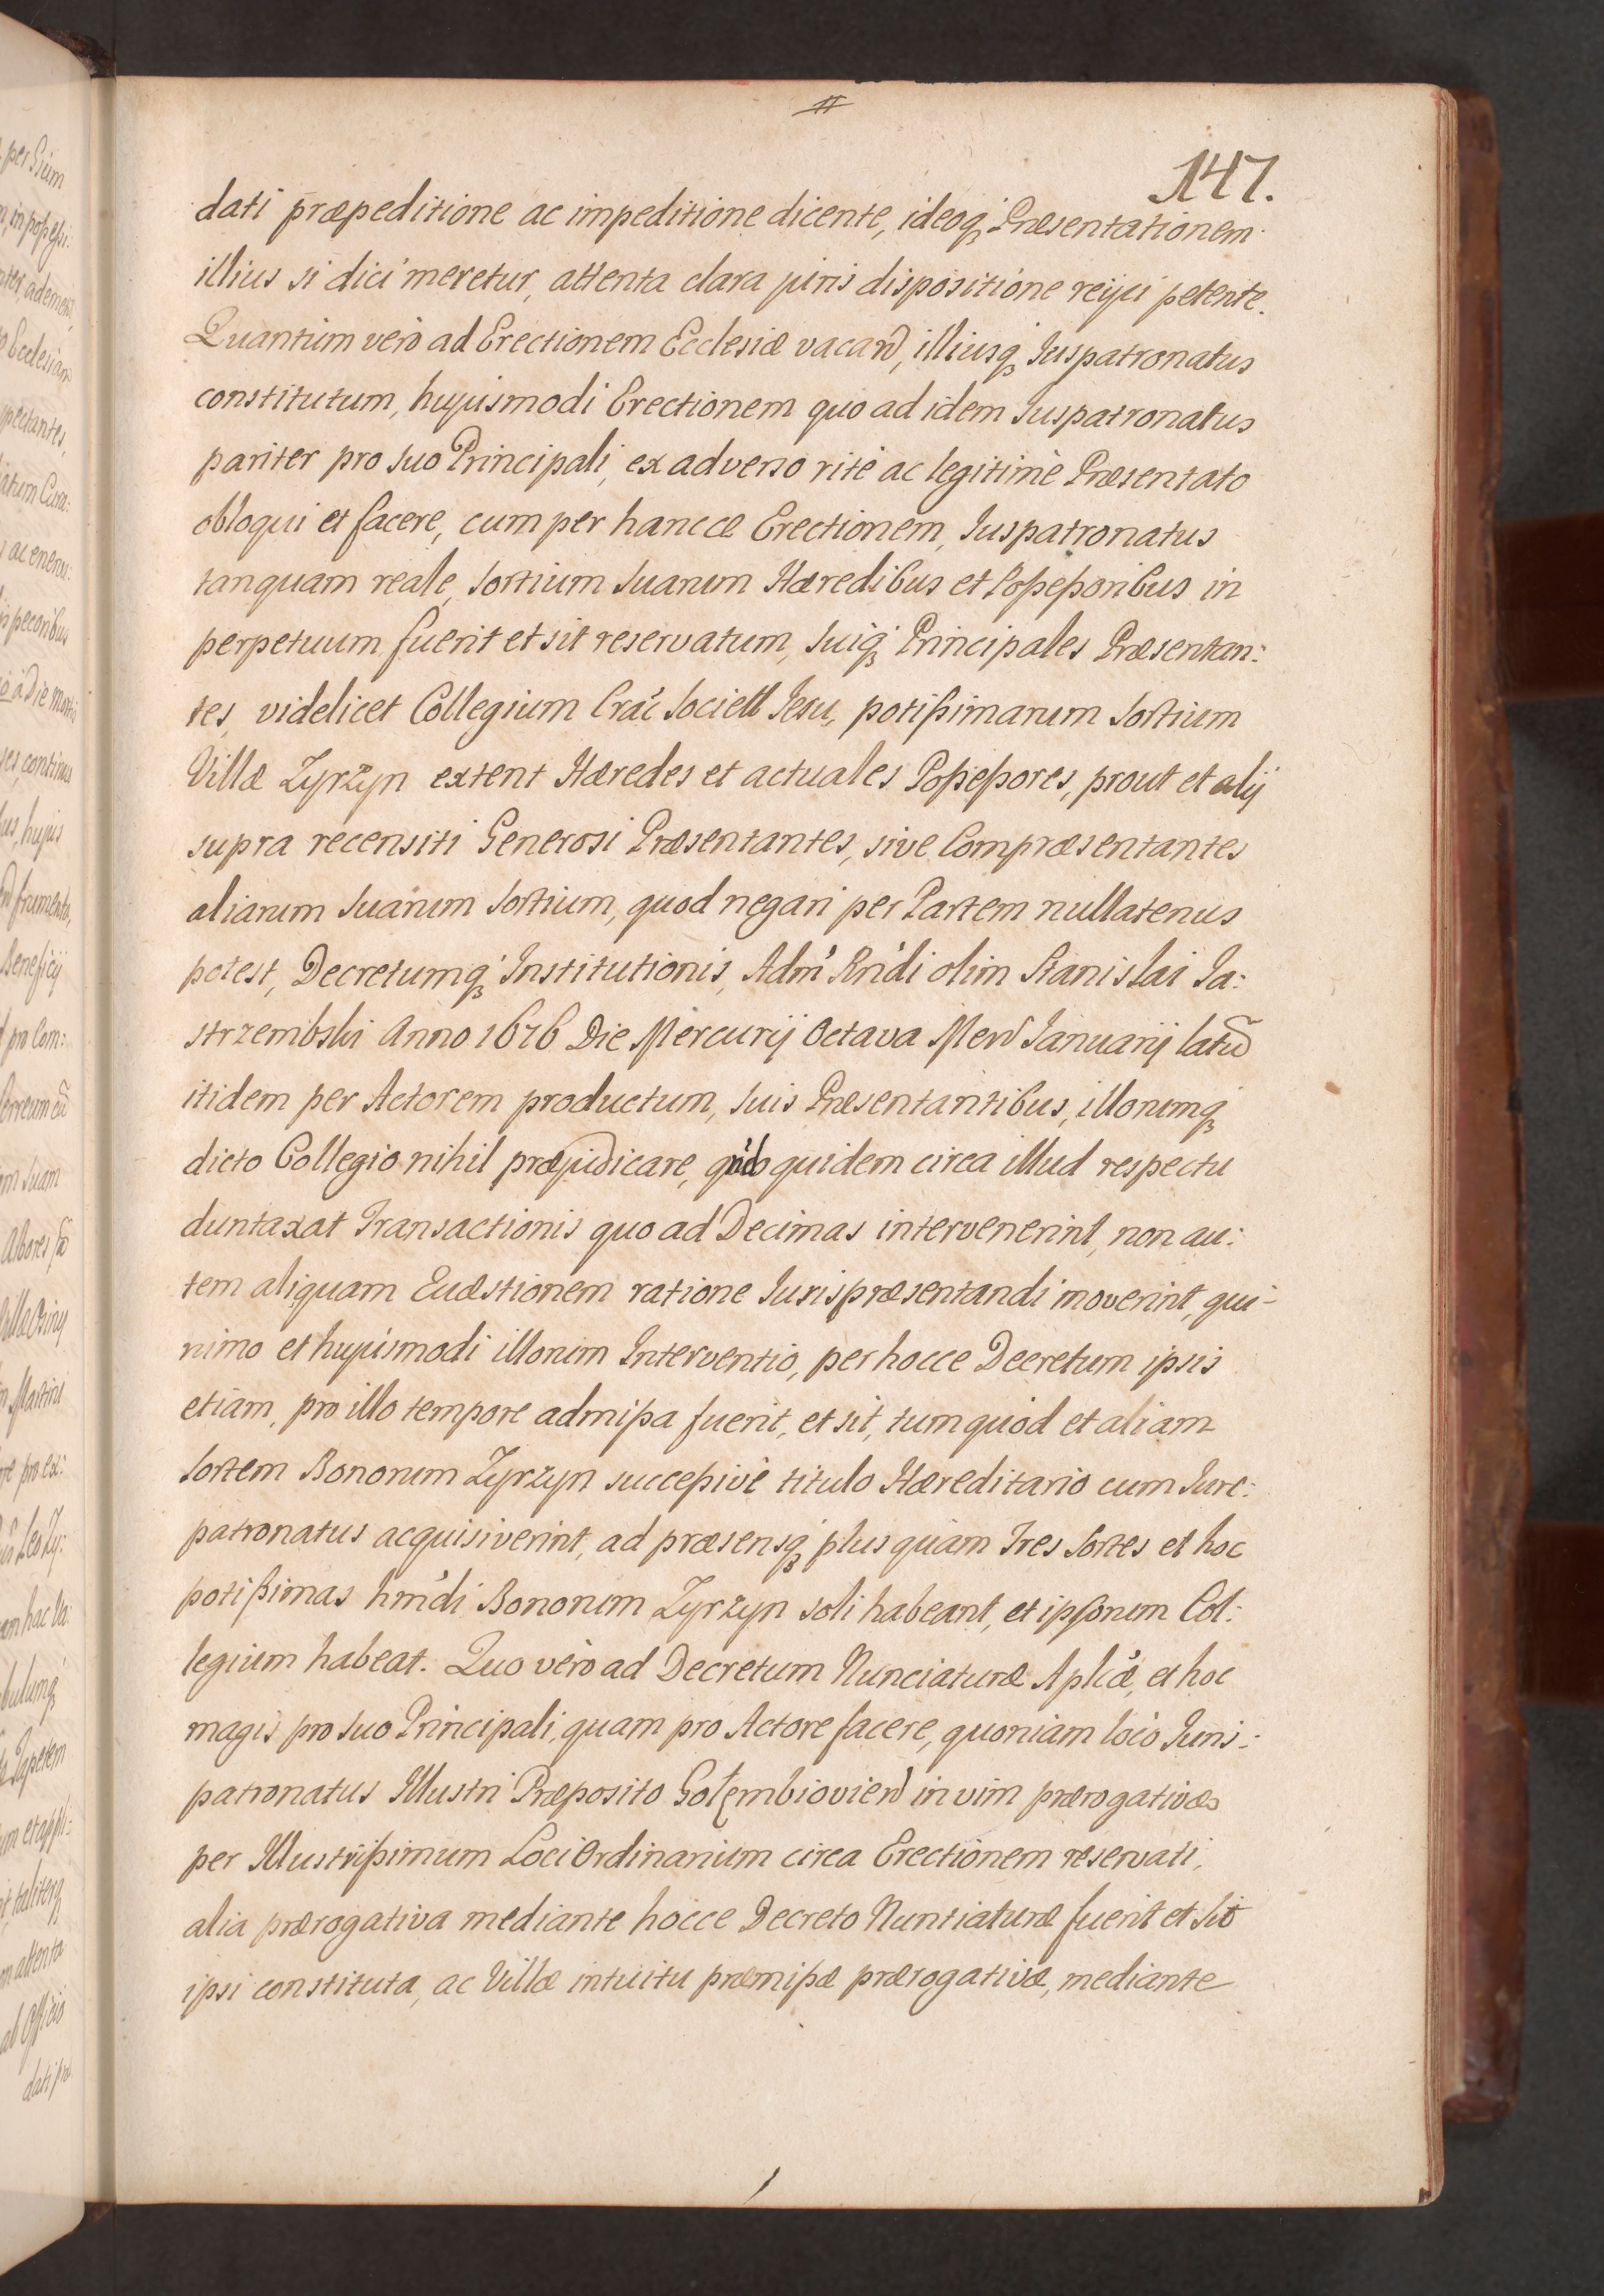 147.
dati præpeditione ac impeditione dicente, ideoq; Præsentationem
illius si dici meretur, attenta clara juris dispositione reijci petente.
Quantum verò ad Erectionem Ecclesiæ vacañ, illiusq; Juspatronatus
constitutum, hujusmodi Erectionem quo ad idem Juspatronatus
pariter pro suo Principali, ex adverso ritè ac legitimè Præsentato
obloqui et facere, cum per hancce Erectionem, Juspatronatus
tanquam reale, Sortium Suarum Hæredibus et Possessoribus in
perpetuum fuerit et sit reservatum, Suiq; Principales Præsentan:
tes, videlicet Collegium Crac̃ Societt Jesu, potissimarum Sortium
Villæ Zyrzyn extent Hæredes et actuales Possessores, prout et alij
supra recensiti Generosi Præsentantes, sive Compræsentantes
aliarum Suarum Sortium, quod negari per Partem nullatenus
potest, Decretumq; Institutionis, Adm̃ Rñdi olim Stanislai Ja:
strzembski Anno 1676 Die Mercurij Octava Meñ Januarij latũ
itidem per Actorem productum, Suis Præsentantibus, illorumq;
dicto Collegio nihil præjudicare, quidquidem circa illud respectu
duntaxat Transactionis quo ad Decimas intervenerint, non au:
tem aliquam Quæstionem ratione Jurispræsentandi moverint, qui-
nimo et hujusmodi illorum Interventio, per hocce Decretum ipsis
etiam, pro illo tempore admissa fuerit, et sit, tum quòd et aliam
Sortem Bonorum Zyrzyn successivè titulo Hæreditario cum Jure:
patronatus acquisiverint, ad præsensq; plus quàm Tres Sortes et hoc
potissimas hm̃di Bonorum Zyrzyn soli habeant, et ipsorum Col:
legium habeat. Quo verò ad Decretum Nunciaturæ Aplicæ, et hoc
magis pro suo Principali, quam pro Actore facere, quoniam loco Juris:
patronatus Illustri Præposito Gołembiovień in vim prærogativæ
per Illustrissimum Loci Ordinarium circa Erectionem reservati,
alia prærogativa mediante hocce Decreto Nuntiaturæ fuerit et sit
ipsi constituta, ac Villæ intuitu præmissæ prærogativæ, mediante